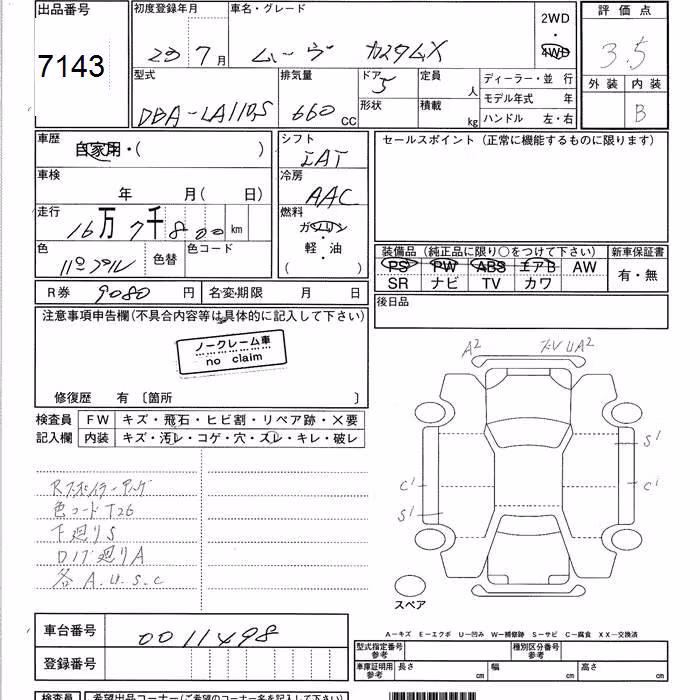 出品番号
7143
初度登録年月
23 7月
車名・グレード
ムーヴ カスタムX
2WD
・
4WD
評価点
3.5
外装 内装
B
型式
DBA-LA110S
排気量
660 cc
ドア
5
形状
定員
人
積載
kg
ディーラー・並 行
モデル年式 年
ハンドル 左・右
車歴
自家用・( )
車検
年 月( 日)
走行
16万7千800km
色
パープル
色替
色コード
R券 9080 円
名変期限 月 日
シフト
IAT
冷房
AAC
燃料
ガソリン
・
軽・油
・
( )
セールスポイント(正常に機能するものに限ります)
装備品(純正品に限り○をつけて下さい)
PS PW ABS エアB AW
SR ナビ TV カワ
新車保証書
有・無
後日品
注意事項申告欄(不具合内容等は具体的に記入して下さい)
ノークレーム車
no claim
修復歴 有〔箇所 〕
検査員
記入欄
FW キズ・飛石・ヒビ割・リペア跡・×要
内装 キズ・汚レ・コゲ・穴・スレ・キレ・破レ
色コードT26
下廻りS
Dノブ廻りA
各A.U.S.C
A2
UA2
S1
C1
C1
S1
スペア
車台番号
0011498
登録番号
A-キズ E-エクボ U-凹み W-補修跡 S-サビ C-腐食 XX-交換済
型式指定番号
参考
種別区分番号
参考
車庫証明用
参考
長さ cm
幅 cm
高さ cm
検査員
希望出品コーナー(ご希望のコーナー名を記入して下さい)